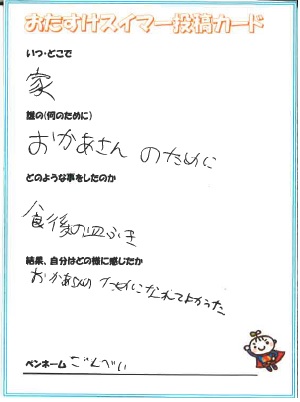 おたすけスイマー投稿カード
いつ・どこで
家
誰の(何のために)
おかあさん のために
どのような事をしたのか
食後の皿ふき
結果、自分はどの様に感じたか
おかあさんの ためになれてよかった
ペンネーム ごんべい